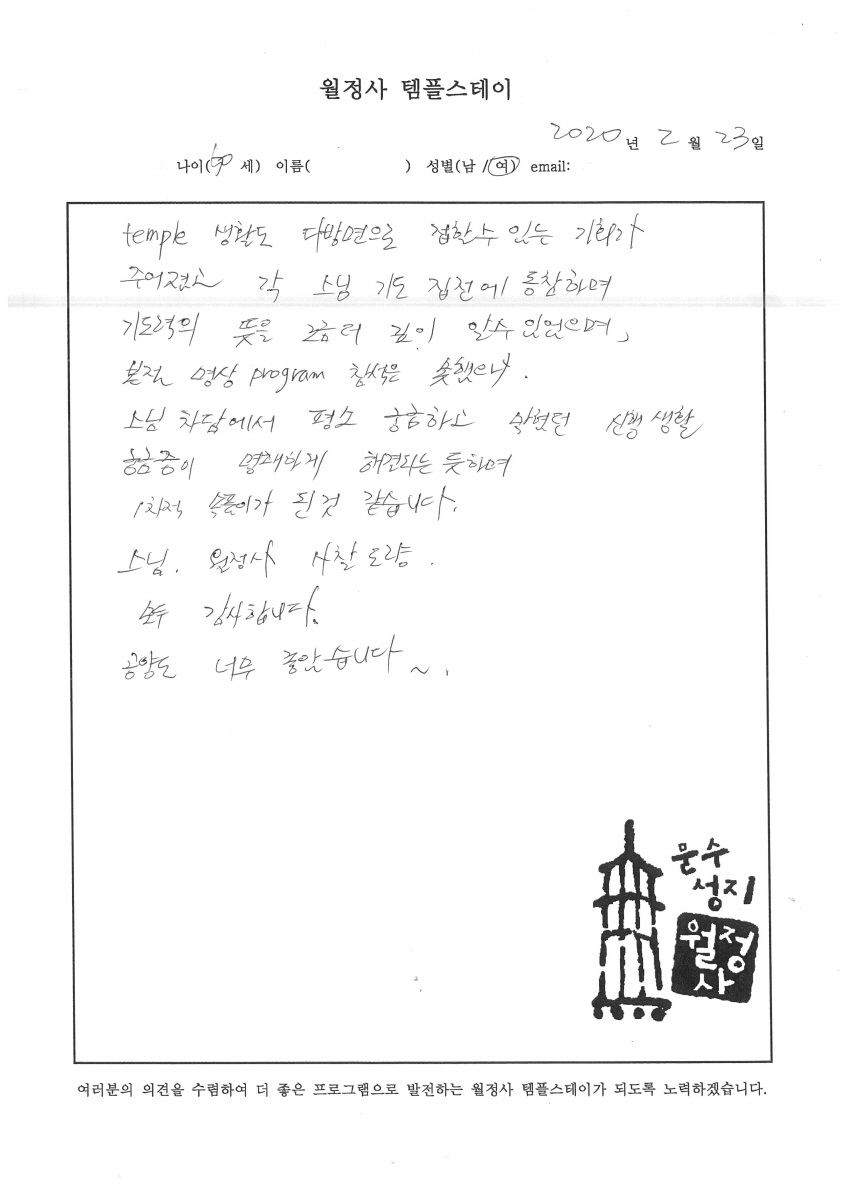 월정사 템플스테이
2020년 2월 23일
나이( 세) 이름( ) 성별(남/여) email:
temple 생활도 다방면으로 접할수 있는 기회가
주어졌고 각 스님 기도 집전에 동참하며
기도력의 뜻을 깊이 알수 있었으며,
본절 명상 program 참석은 못했으나.
스님 차담에서 평소 궁금하고 막혔던 신행생활
궁금증이 명쾌하게 해결되는 듯하며
1차적 숙풀이가 된것 같습니다.
스님. 월정사 사찰 도량.
모두 감사합니다.
공양도 너무 좋았습니다~.
문수
성지
월정
사
여러분의 의견을 수렴하여 더 좋은 프로그램으로 발전하는 월정사 템플스테이가 되도록 노력하겠습니다.